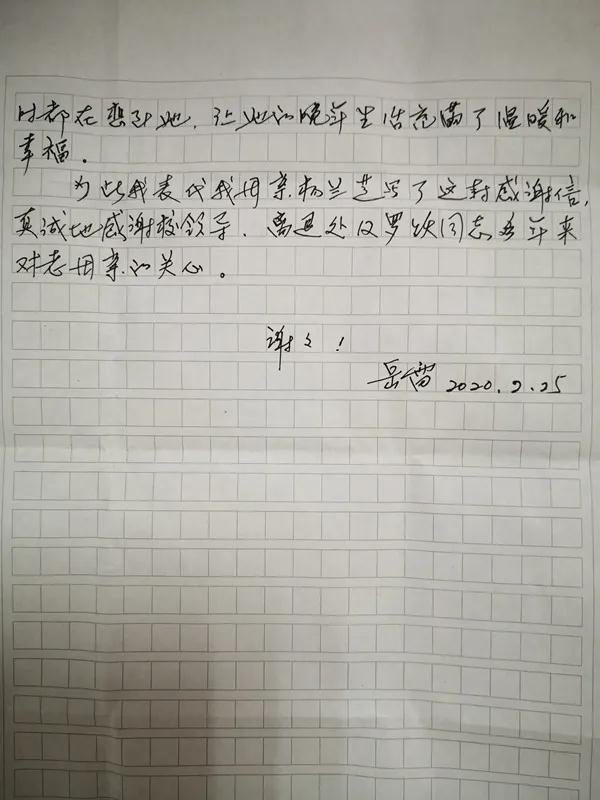 时都在想到她，让她的晚年生活充满了温暖和
幸福。
为此我表代我母亲杨兰芝写了这封感谢信，
真诚地感谢校领导、离退处及罗欢同志多年来
对老母亲的关心。
谢々！
岳雷 2020.9.25